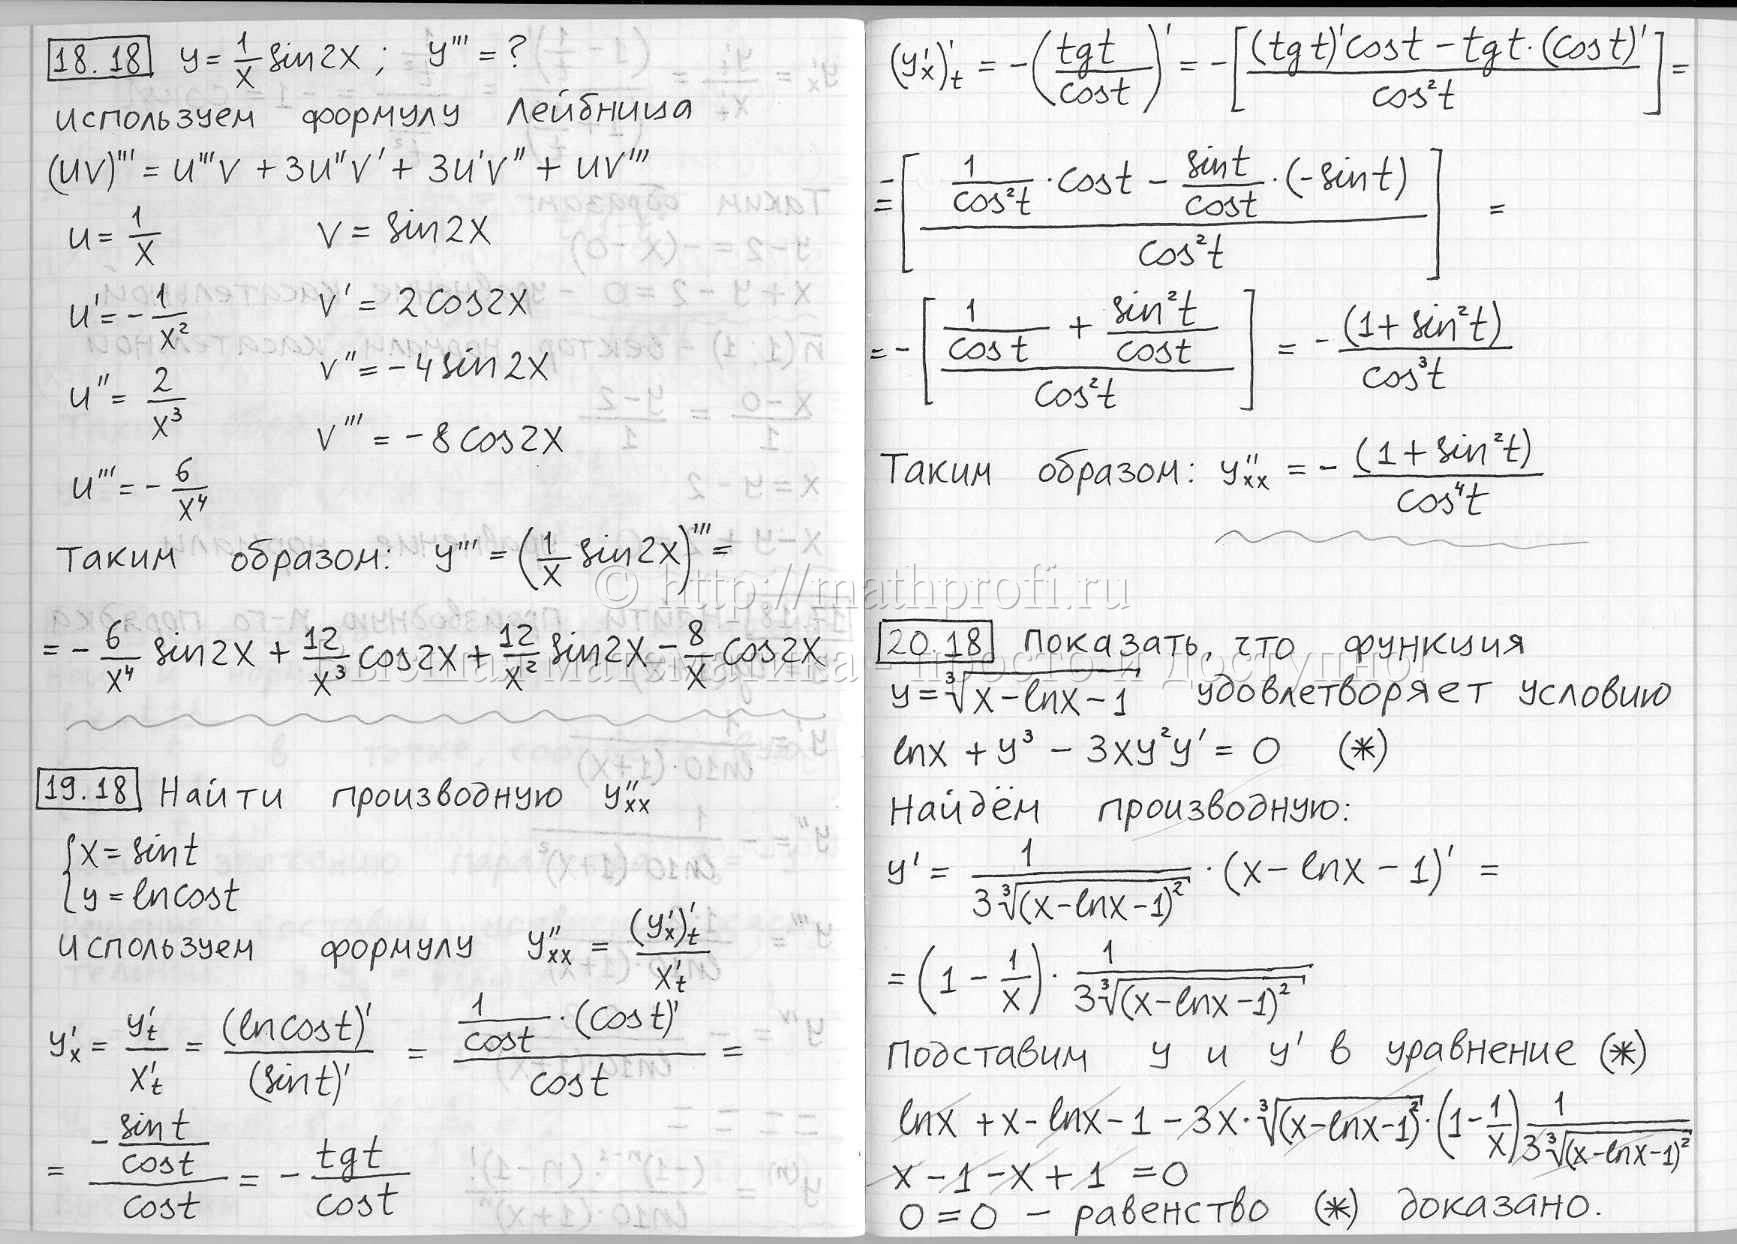 18.18 y = 1/x sin2x ; y''' = ?
используем формулу Лейбница
(uv)''' = u'''v + 3u''v' + 3u'v'' + uv'''
u = 1/x v = sin2x
u' = - 1/x² v' = 2cos2x
u'' = 2/x³ v'' = -4sin2x
u''' = - 6/x⁴ v''' = -8cos2x
таким образом: y''' = (1/x sin2x)''' =
= - 6/x⁴ sin2x + 12/x³ cos2x + 12/x² sin2x - 8/x cos2x
19.18 Найти производную y''xx
{ x = sint
{ y = lncost
используем формулу y''xx = (y'x)'t / x't
y'x = y't / x't = (lncost)' / (sint)' = (1/cost · (cost)') / cost =
= (- sint/cost) / cost = - tgt/cost
(y'x)'t = - (tgt/cost)' = - [((tgt)'cost - tgt·(cost)') / cos²t] =
= - [(1/cos²t · cost - sint/cost · (-sint)) / cos²t] =
= - [(1/cost + sin²t/cost) / cos²t] = - (1 + sin²t) / cos³t
Таким образом: y''xx = - (1 + sin²t) / cos⁴t
© http://mathprofi.ru
20.18 Показать, что функция
y = ∛(x - lnx - 1) удовлетворяет условию
lnx + y³ - 3xy²y' = 0 (*)
Найдём производную:
y' = 1 / (3∛(x-lnx-1)²) · (x - lnx - 1)' =
= (1 - 1/x) · 1 / (3∛(x-lnx-1)²)
Подставим y и y' в уравнение (*)
lnx + x - lnx - 1 - 3x · ∛(x-lnx-1)² · (1 - 1/x) 1 / (3∛(x-lnx-1)²)
x - 1 - x + 1 = 0
0 = 0 - равенство (*) доказано.